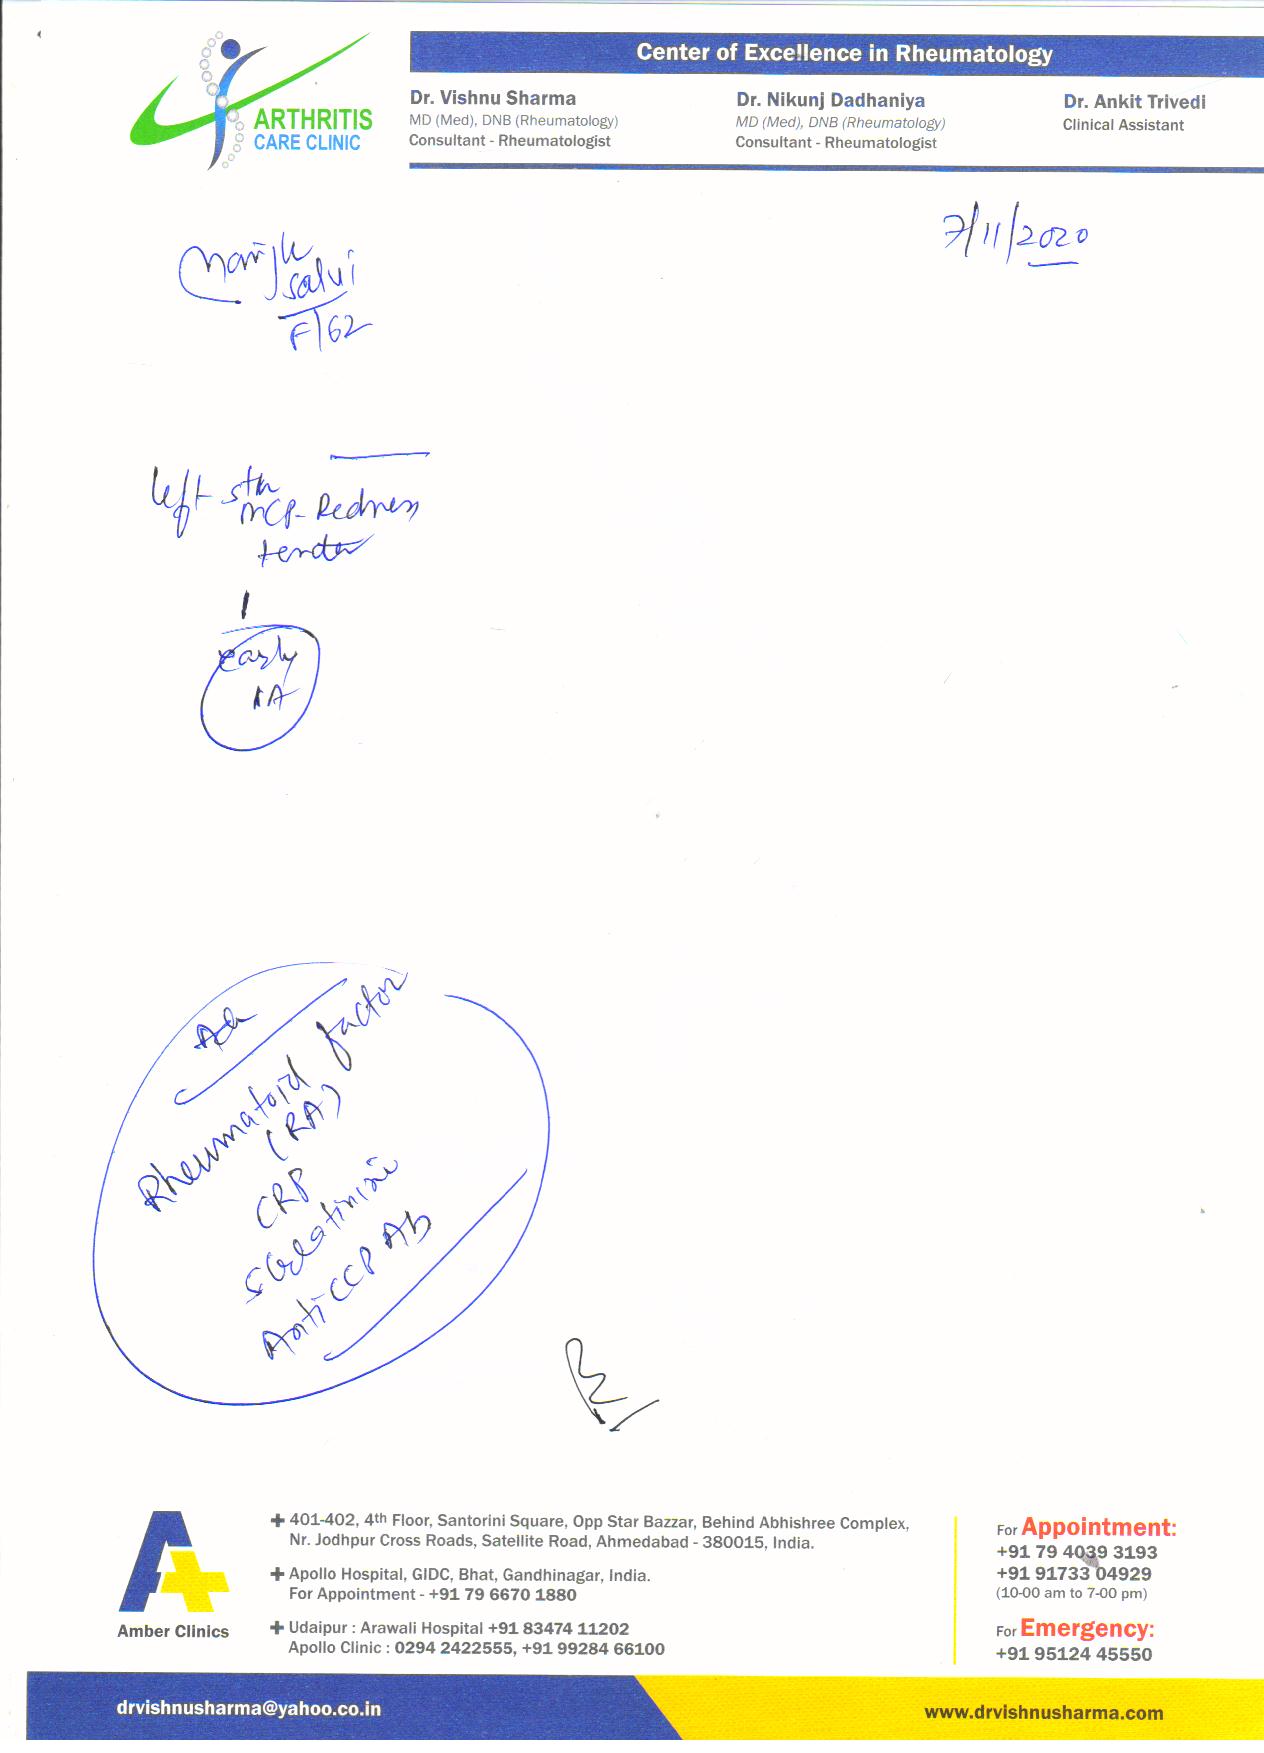 Center of Excellence in Rheumatology
ARTHRITIS
CARE CLINIC
Dr. Vishnu Sharma
MD (Med), DNB (Rheumatology)
Consultant - Rheumatologist
Dr. Nikunj Dadhaniya
MD (Med), DNB (Rheumatology)
Consultant - Rheumatologist
Dr. Ankit Trivedi
Clinical Assistant
7/11/2020
salvi
F/62
left 5th
MCP- Redness
tender
early
Rheumatoid factor
(RA)
CRP
S creatinine
Anti CCP Ab
Amber Clinics
401-402, 4th Floor, Santorini Square, Opp Star Bazzar, Behind Abhishree Complex,
Nr. Jodhpur Cross Roads, Satellite Road, Ahmedabad - 380015, India.
Apollo Hospital, GIDC, Bhat, Gandhinagar, India.
For Appointment - +91 79 6670 1880
Udaipur : Arawali Hospital +91 83474 11202
Apollo Clinic : 0294 2422555, +91 99284 66100
For Appointment:
+91 79 4039 3193
+91 91733 04929
(10-00 am to 7-00 pm)
For Emergency:
+91 95124 45550
drvishnusharma@yahoo.co.in
www.drvishnusharma.com